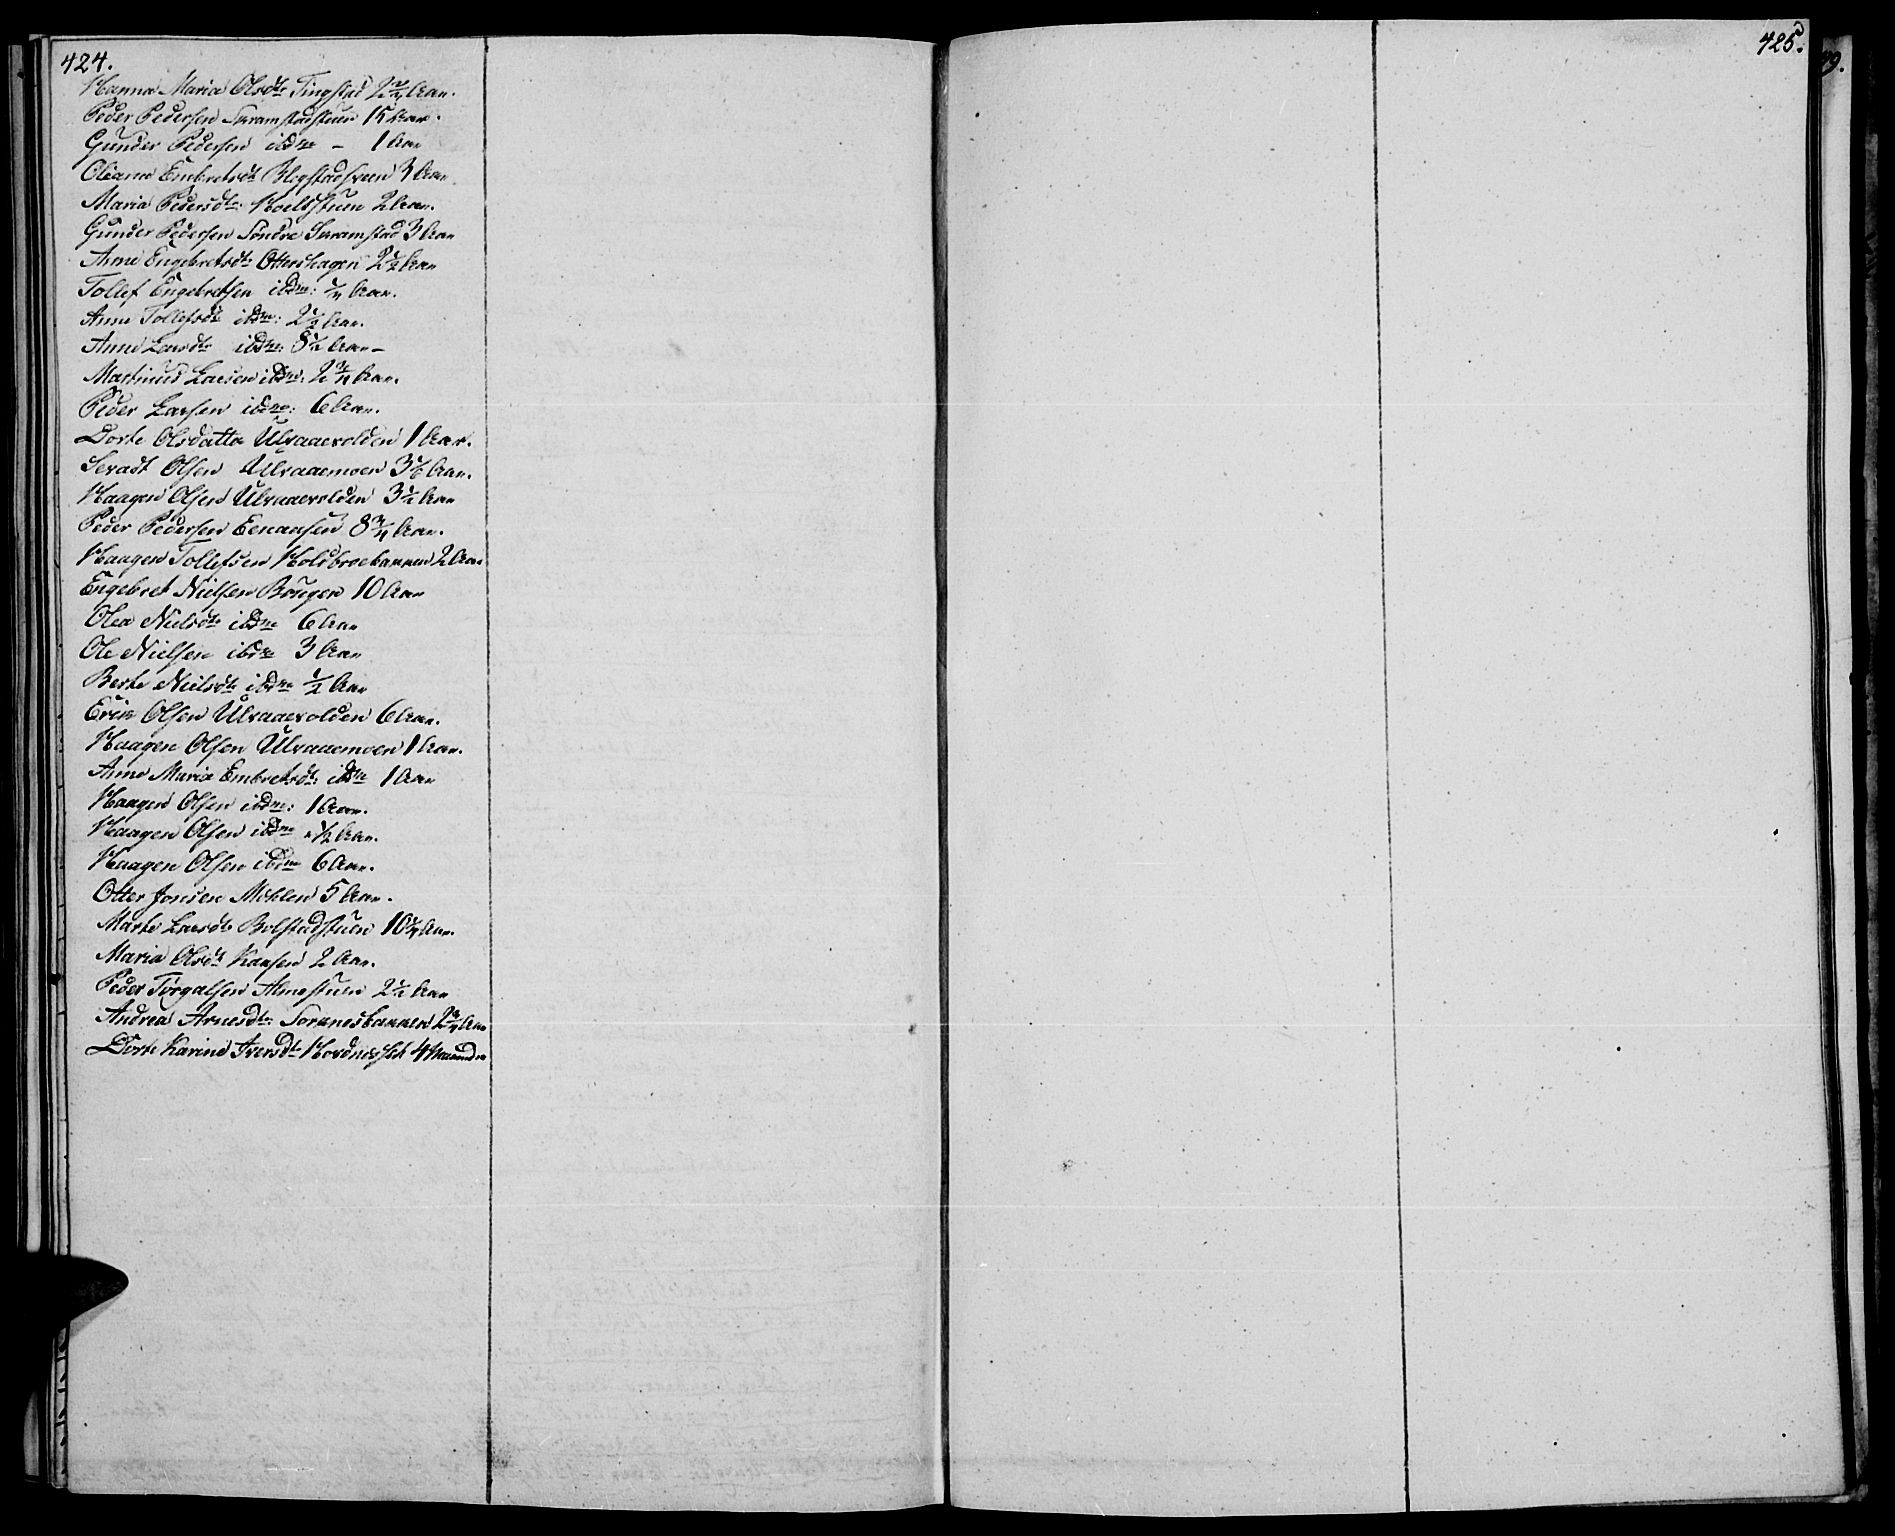 424.
Hanna Maria Olsdtr Tingstad 2 2/4 Aar.
Peder Pedersen Skramstadstuen 15 Aar.
Gunder Pedersen ibdm - 1 Aar
Oleana Embretsdtr 3 Aar
Maria Pedersdtr: Moeltstuen 2 Aar.
Gunder Pedersen Søndre Skramstad 3 Aar
Anne Engebretsdtr Ottershagen 2 1/2 Aar
Tollef Engebretsen ibdm: 1/4 Aar.
Anne Tollefsdtr ibdm: 2 1/2 Aar.
Anne Larsdtr ibdm: 8 1/2 Aar -
Martinus Larsen ibdm: 2 3/4 Aar.
Peder Larsen ibdm: 6 Aar.
Dorte Olsdatter Ulvaaevolden 1 Aar.
Olsen Ulvaaemoen 3 Aar.
Haagen Olsen Ulvaaevolden 3 1/2 Aar
Peder Pedersen Eenaasen 8 3/4 Aar.
Haagen Tollefsen Holdbroebakken 2 Aar
Engebret Nielsen Bougen 10 Aar
Olea Nielsdtr ibdm 6 Aar
Ole Nielsen ibdm 3 Aar
Berte Nielsdtr ibdm 1/2 Aar
Erik Olsen Ulvaaevolden 6 Aar.
Haagen Olsen Ulvaaemoen 1 Aar.
Anne Maria Embretsdtr: ibdm 1 Aar
Haagen Olsen ibdm: 1 Aar.
Haagen Olsen ibdm 1/2 Aar.
Haagen Olsen ibdm 6 Aar.
Otter Jonsen Møhlen 5 Aar.
Marte Larsdtr Bolstadstuen 10 1/4 Aar.
Maria Olsdtr Kaasen 2 Aar.
Peder Torgalsen Almestuen 2 1/2 Aar
Andrea Arnesdtr: Sorknesbakken 2 3/4 Aar
Dorte Karine Iversdtr 4 Maaneder
425.